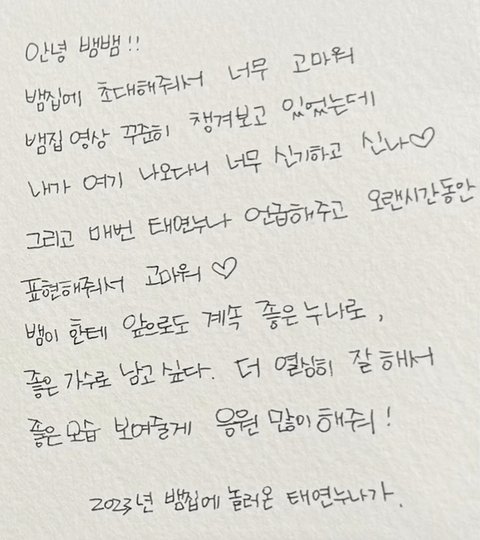 안녕 뱀뱀!!
뱀집에 초대해줘서 너무 고마워
뱀집 영상 꾸준히 챙겨보고 있었는데
내가 여기 나오다니 너무 신기하고 신나♡
그리고 매번 태연누나 언급해주고 오랜시간동안
표현해줘서 고마워♡
뱀이 한테 앞으로도 계속 좋은 누나로,
좋은 가수로 남고 싶다. 더 열심히 잘 해서
좋은 모습 보여줄게 응원 많이 해줘!
2023년 뱀집에 놀러온 태연누나가.